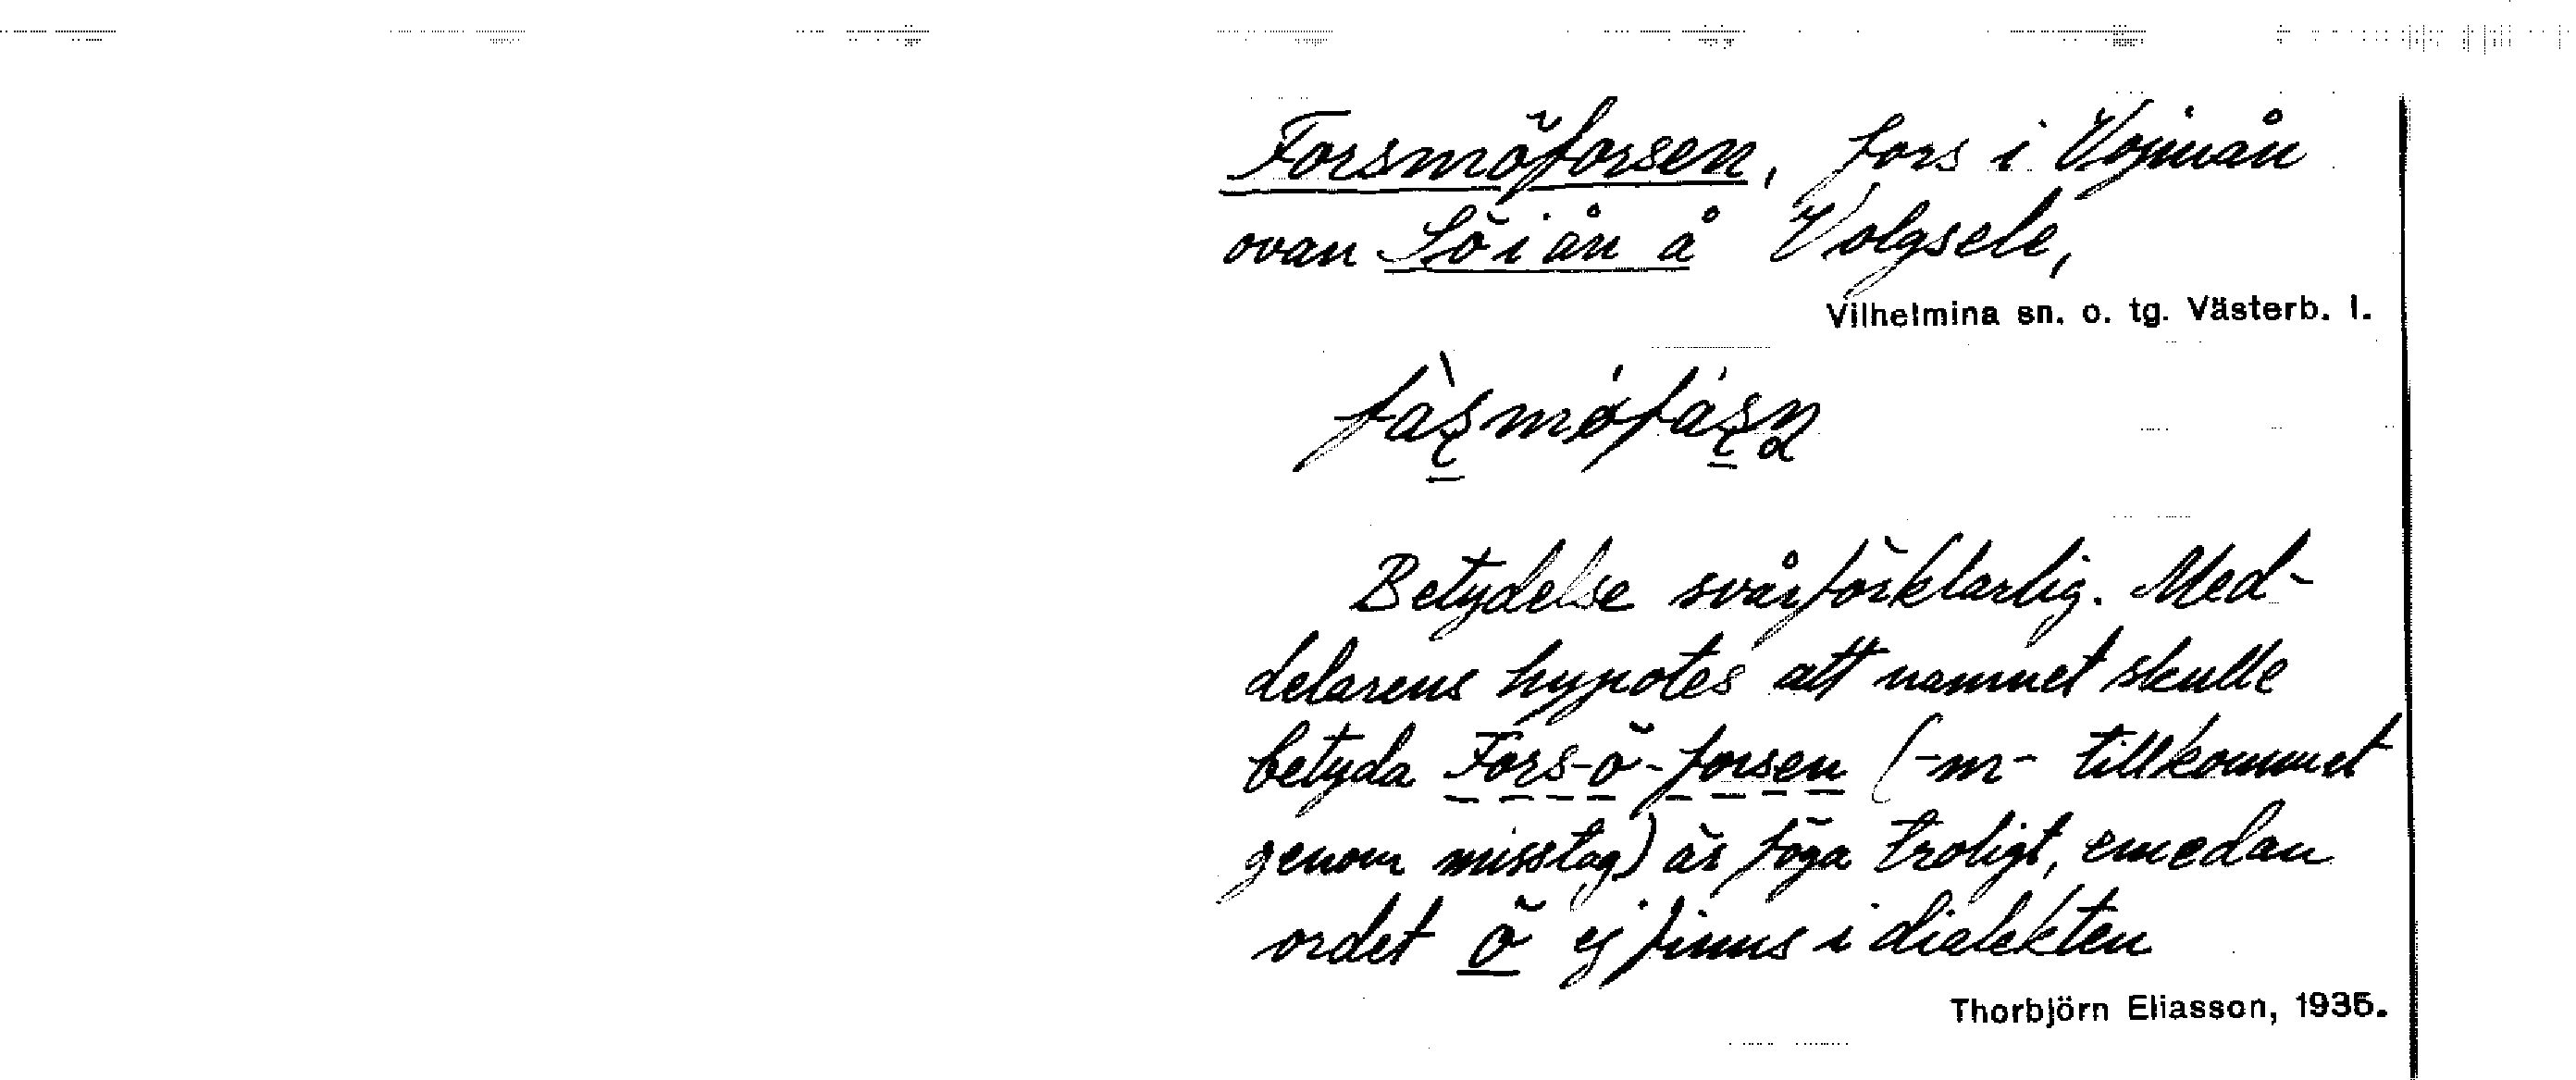 Forsmöforsen, fors i Vojmån
ovan Löiån å Volgsele,
Vilhelmina sn. o. tg. Västerb. l.
Betydelse svårförklarlig. Med-
delarens hypotes att namnet skulle
betyda Fors-ö-forsen (-m- tillkommet
genom misstag) är föga troligt, emedan
ordet ö ej finns i dialekten
Thorbjörn Eliasson, 1935.